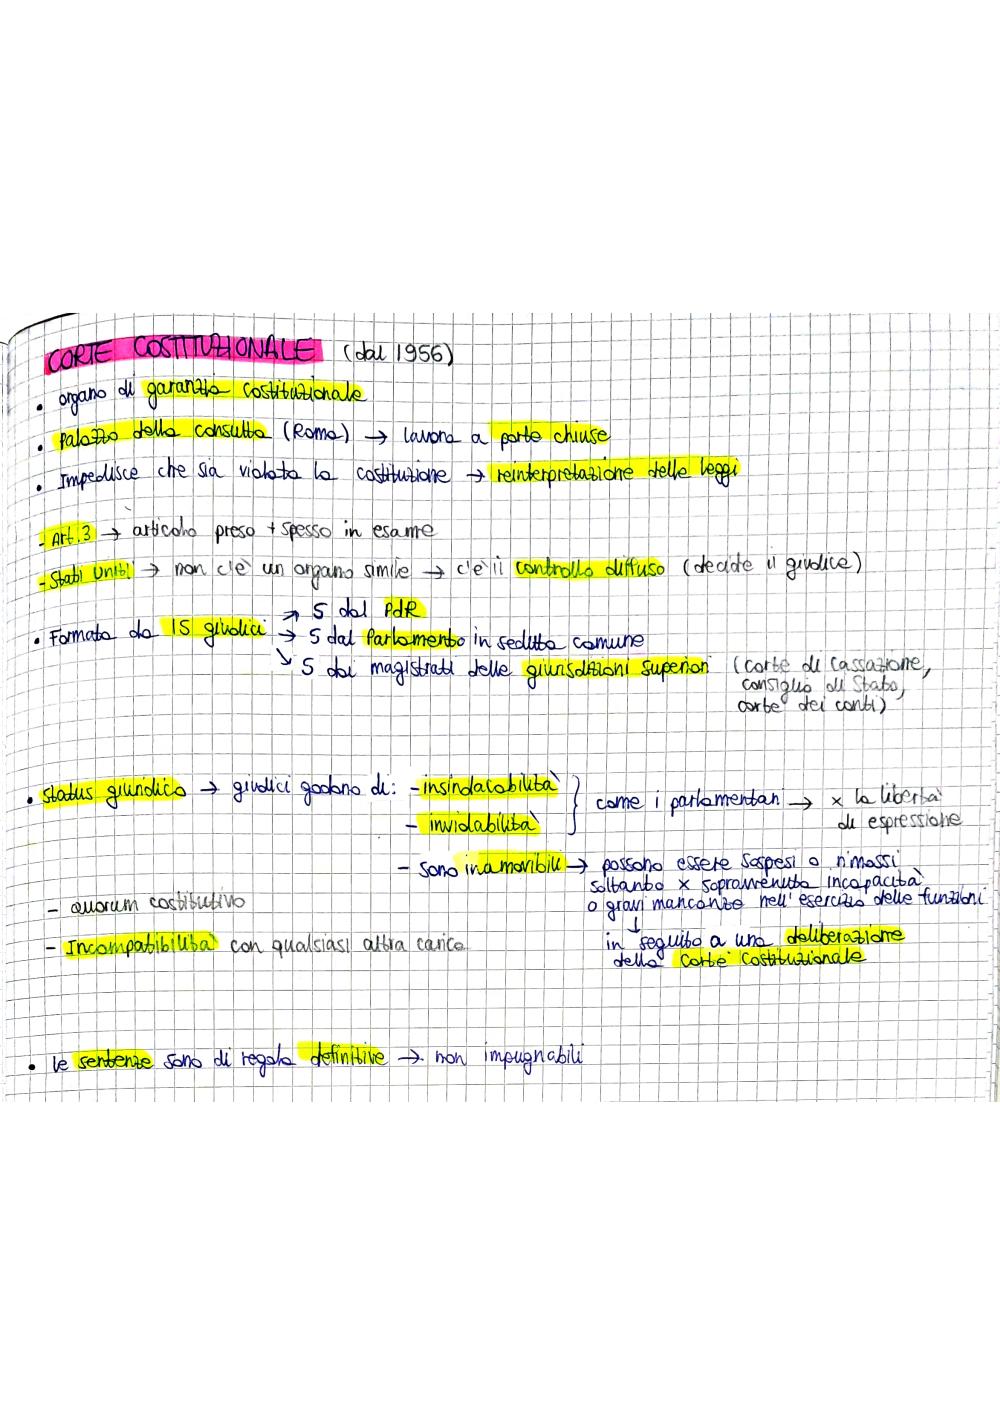 CORTE COSTITUZIONALE (dal 1956)
• organo di garanzia costituzionale
• Palazzo della consulta (Roma) → lavora a porte chiuse
• Impedisce che sia violata la costituzione → reinterpretazione delle leggi
- Art. 3 → articolo preso + spesso in esame
- Stati Uniti → non c'è un organo simile → c'è il controllo diffuso (decide il giudice)
• Formata da 15 giudici → 5 dal PdR
→ 5 dal Parlamento in seduta comune
↘ 5 dai magistrati delle giurisdizioni superiori (corte di Cassazione,
consiglio di Stato,
corte dei conti)
• status giuridico → giudici godono di: - insindacabilità } come i parlamentari → x la libertà
di espressione
- inviolabilità
- sono inamovibili → possono essere sospesi o rimossi
soltanto x sopravvenuta incapacità
o gravi mancanze nell'esercizio delle funzioni
↓
in seguito a una deliberazione
della Corte Costituzionale
- quorum costitutivo
- Incompatibilità con qualsiasi altra carica
• le sentenze sono di regola definitive → non impugnabili